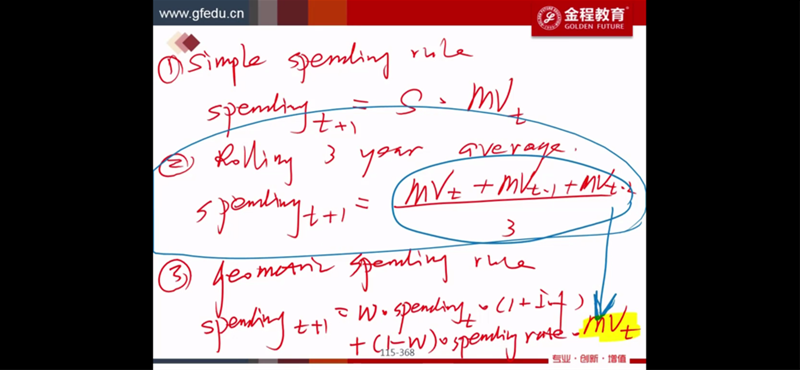 www.gfedu.cn
金程教育
GOLDEN FUTURE
① Simple spending rule
spending t+1 = S · MVt
② Rolling 3 year average.
spending t+1 = MVt + MVt-1 + MVt-2
3
③ geometric spending rule
spending t+1 = W · spending t · (1 + Inf)
+ (1-W) · spending rate · MVt
115-368
专业·创新·增值